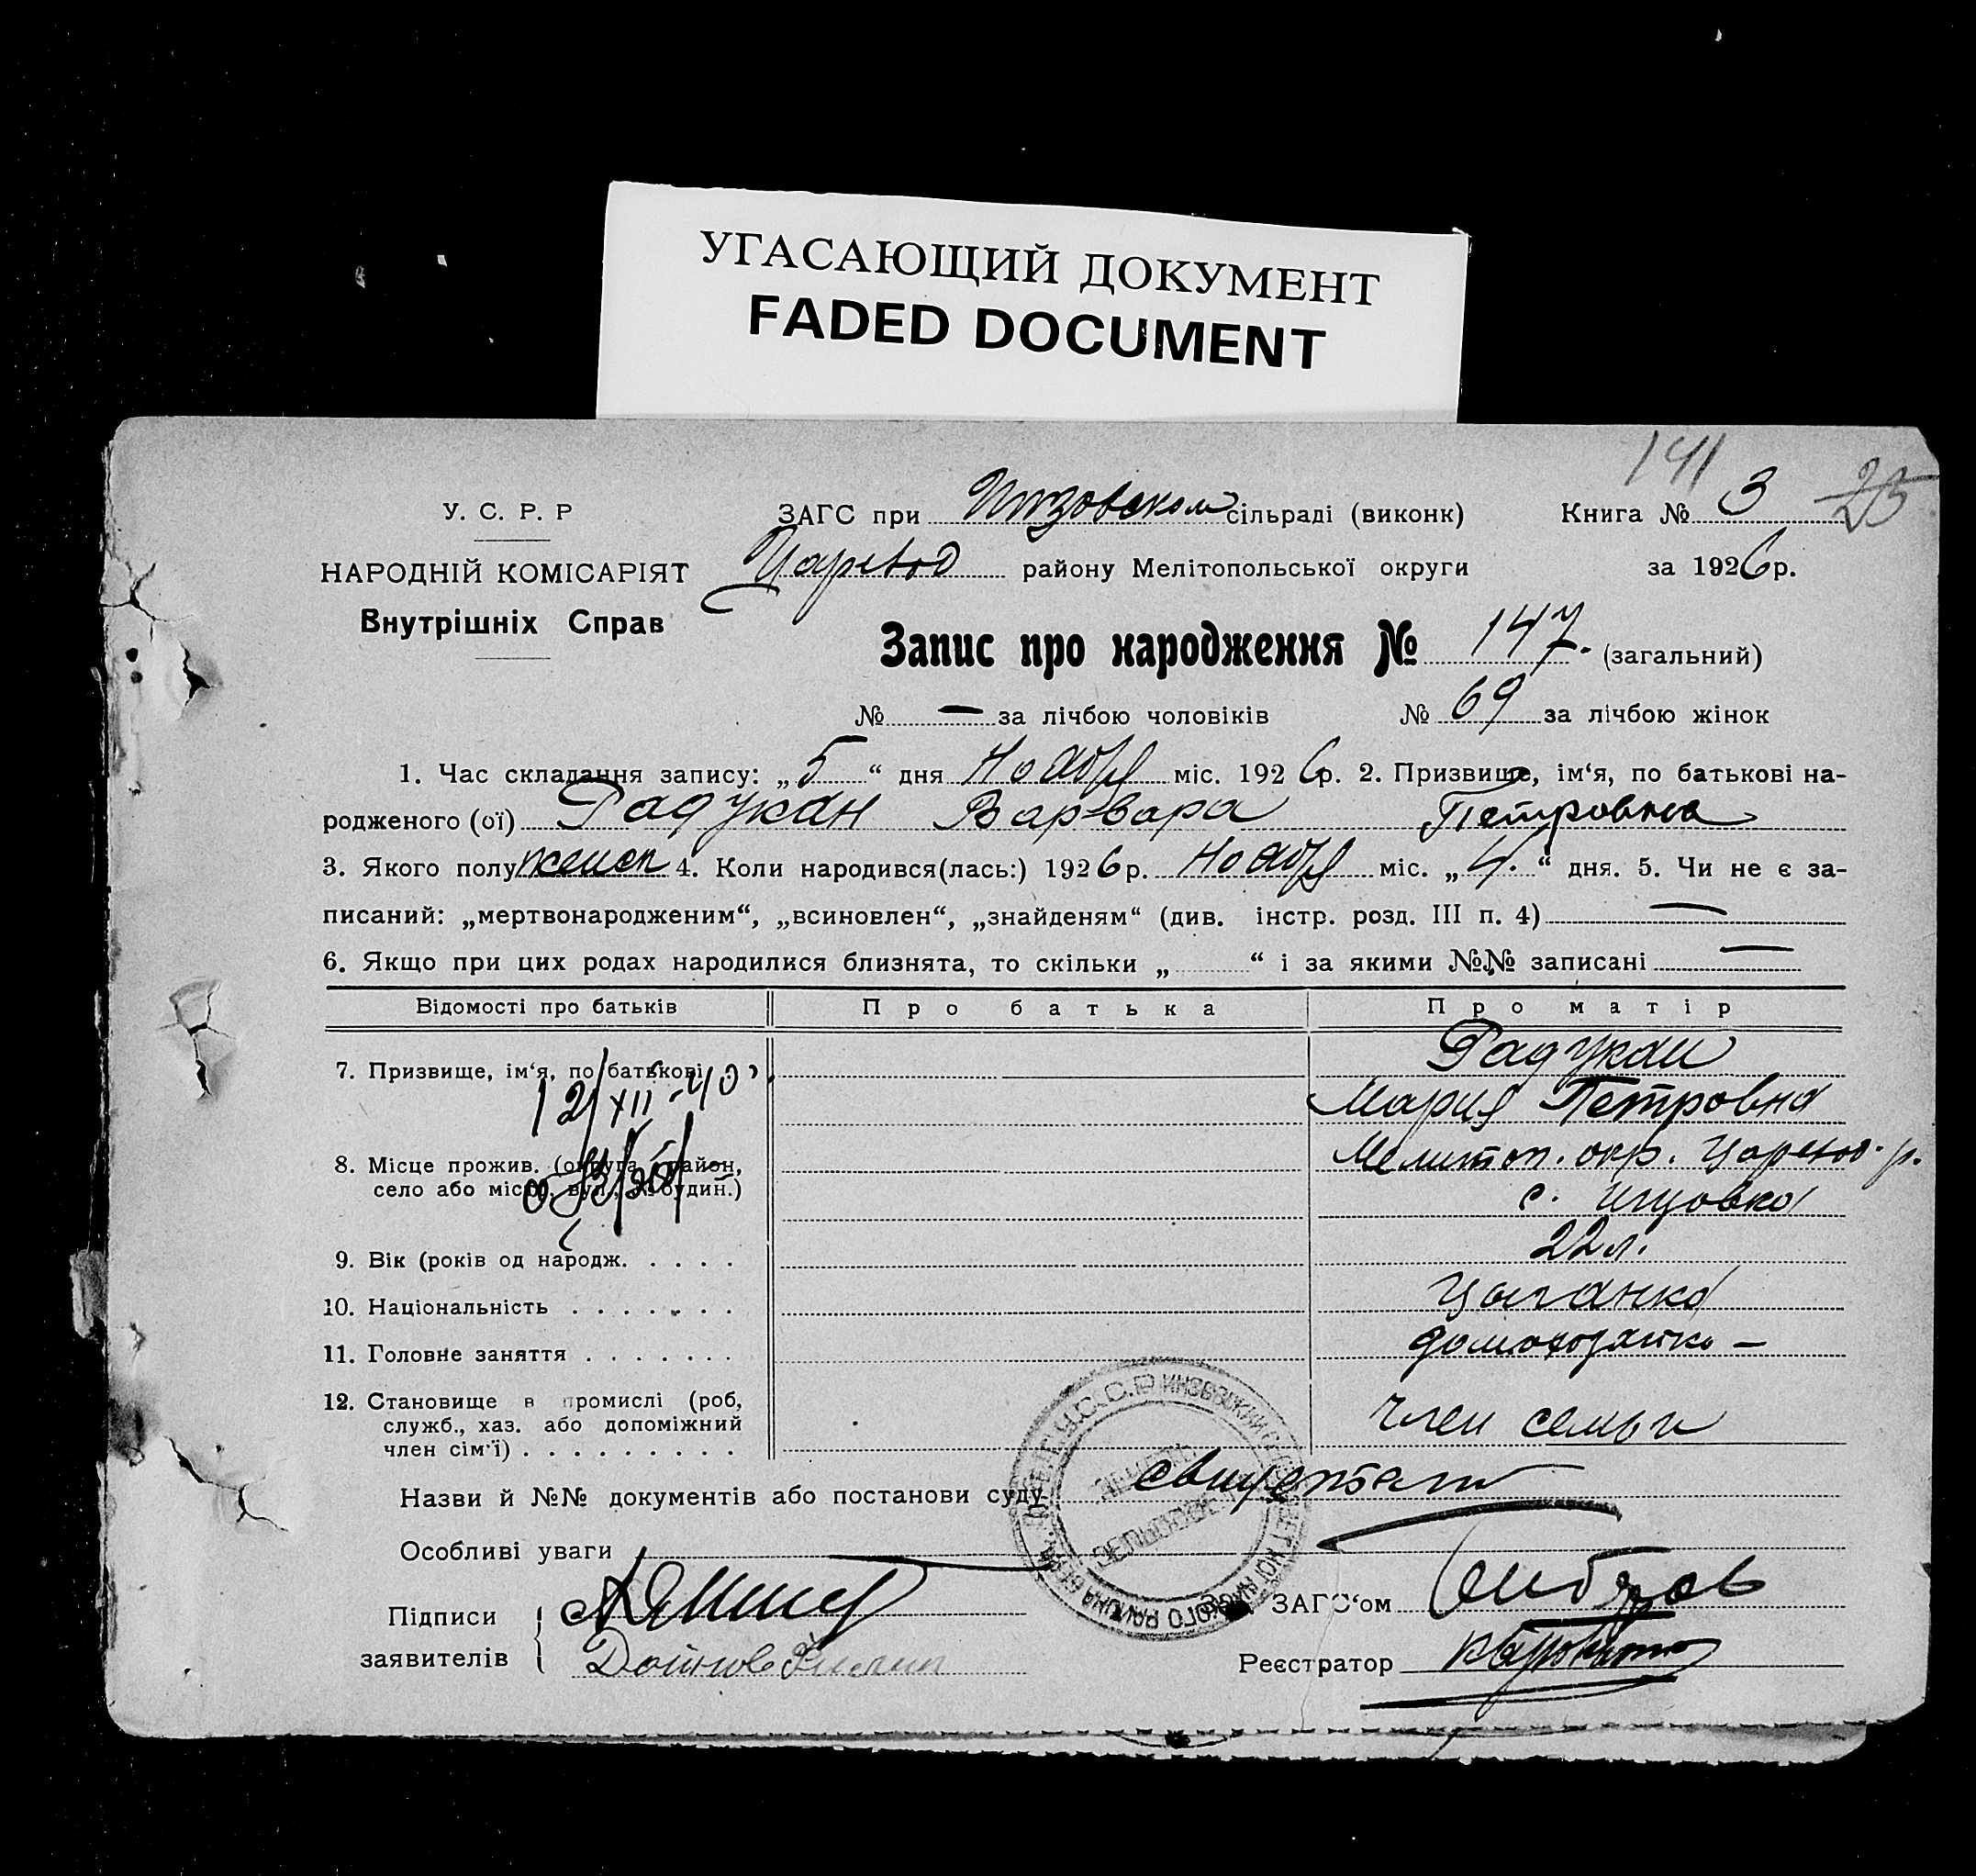 УГАСАЮЩИЙ ДОКУМЕНТ
FADED DOCUMENT
141
У. С. Р. Р ЗАГС при сільраді (виконк) Книга № 3 23
НАРОДНІЙ КОМІСАРІЯТ Царевод району Мелітопольської округи за 1926 р.
Внутрішніх Справ
Запис про народження № 147. (загальний)
№ — за лічбою чоловіків № 69 за лічбою жінок
1. Час складання запису: „5“ дня Ноабря міс. 1926 р. 2. Призвище, ім‘я, по батькові на-
родженого (ої) Радукан Варвара Петровна
3. Якого полу женск 4. Коли народився(лась:) 1926 р. Ноабря міс. „4.“ дня. 5. Чи не є за-
писаний: „мертвонародженим“, „всиновлен“, „знайденям“ (див. інстр. розд. III п. 4) —
6. Якщо при цих родах народилися близнята, то скільки „ “ і за якими №№ записані —
Відомості про батьків Про батька Про матір
7. Призвище, ім‘я, по батькові Радукан
12/XII-40 Мария Петровна
8. Місце прожив. (округа, район, Мелитоп. окр. Царевод. р.
село або місто, вул., № будин.) с.
9. Вік (років од народж. . . . . 22 л.
10. Національність . . . . . . . Цыганка
11. Головне заняття . . . . . . . домохозяйка —
12. Становище в промислі (роб, служб., хаз. або допоміжний член сім‘ї) . . . . . . . . . член семьи
Назви й №№ документів або постанови суду
Особливі уваги
Підписи заявителів ЗАГС‘ом
Реєстратор